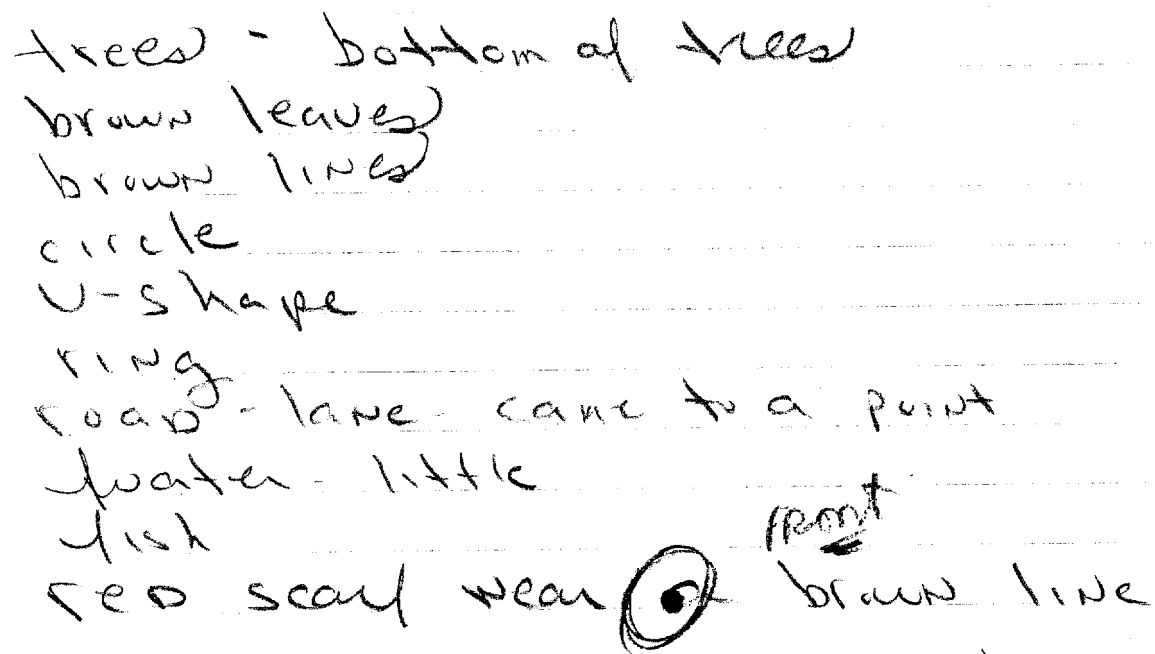 trees - bottom of trees
brown leaves
brown lines
circle
U-shape
ring
road - lane - came to a point
water - little
fish
front
red scarf wear brown line